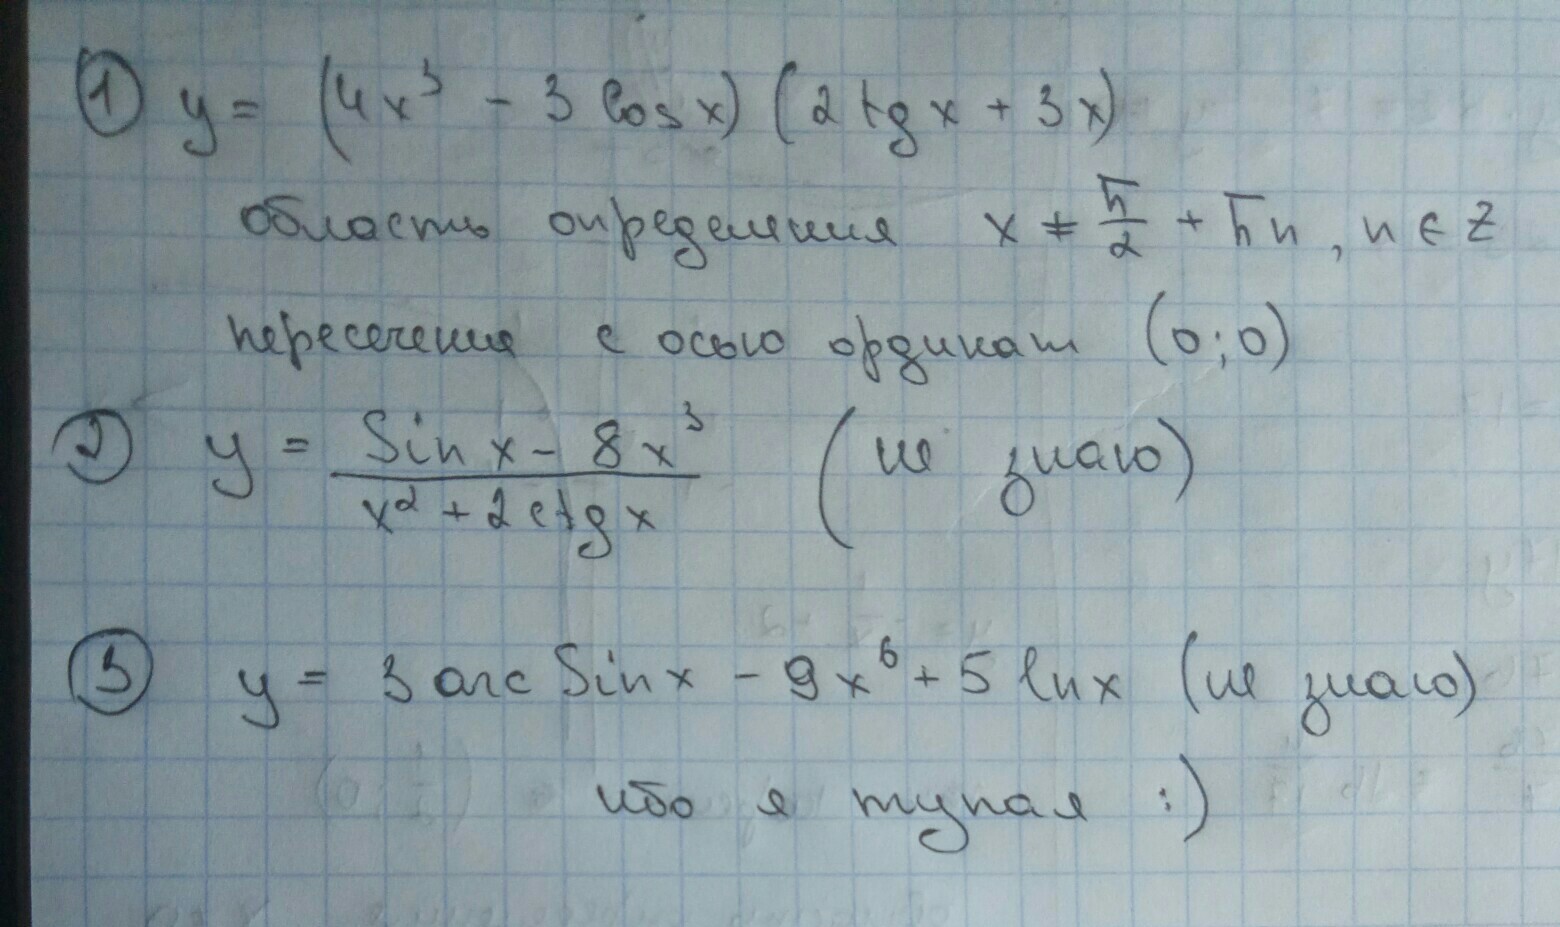 ① y = (4x³ - 3 cos x) (2 tg x + 3x)
область определения x ≠ π/2 + πn, n ∈ Z
пересечения с осью ординат (0;0)
② y = (Sin x - 8x³)/(x² + 2ctg x) (не знаю)
③ y = 3 arc Sin x - 9x⁶ + 5 ln x (не знаю)
ибо я тупая :)